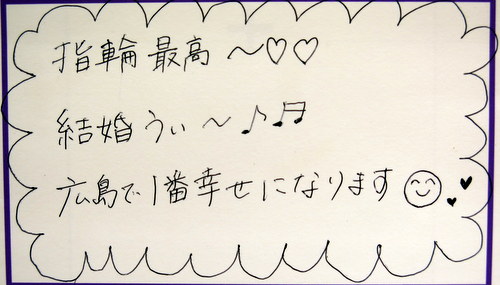 指輪最高～♡♡
結婚うぃ～♪♬
広島で1番幸せになります